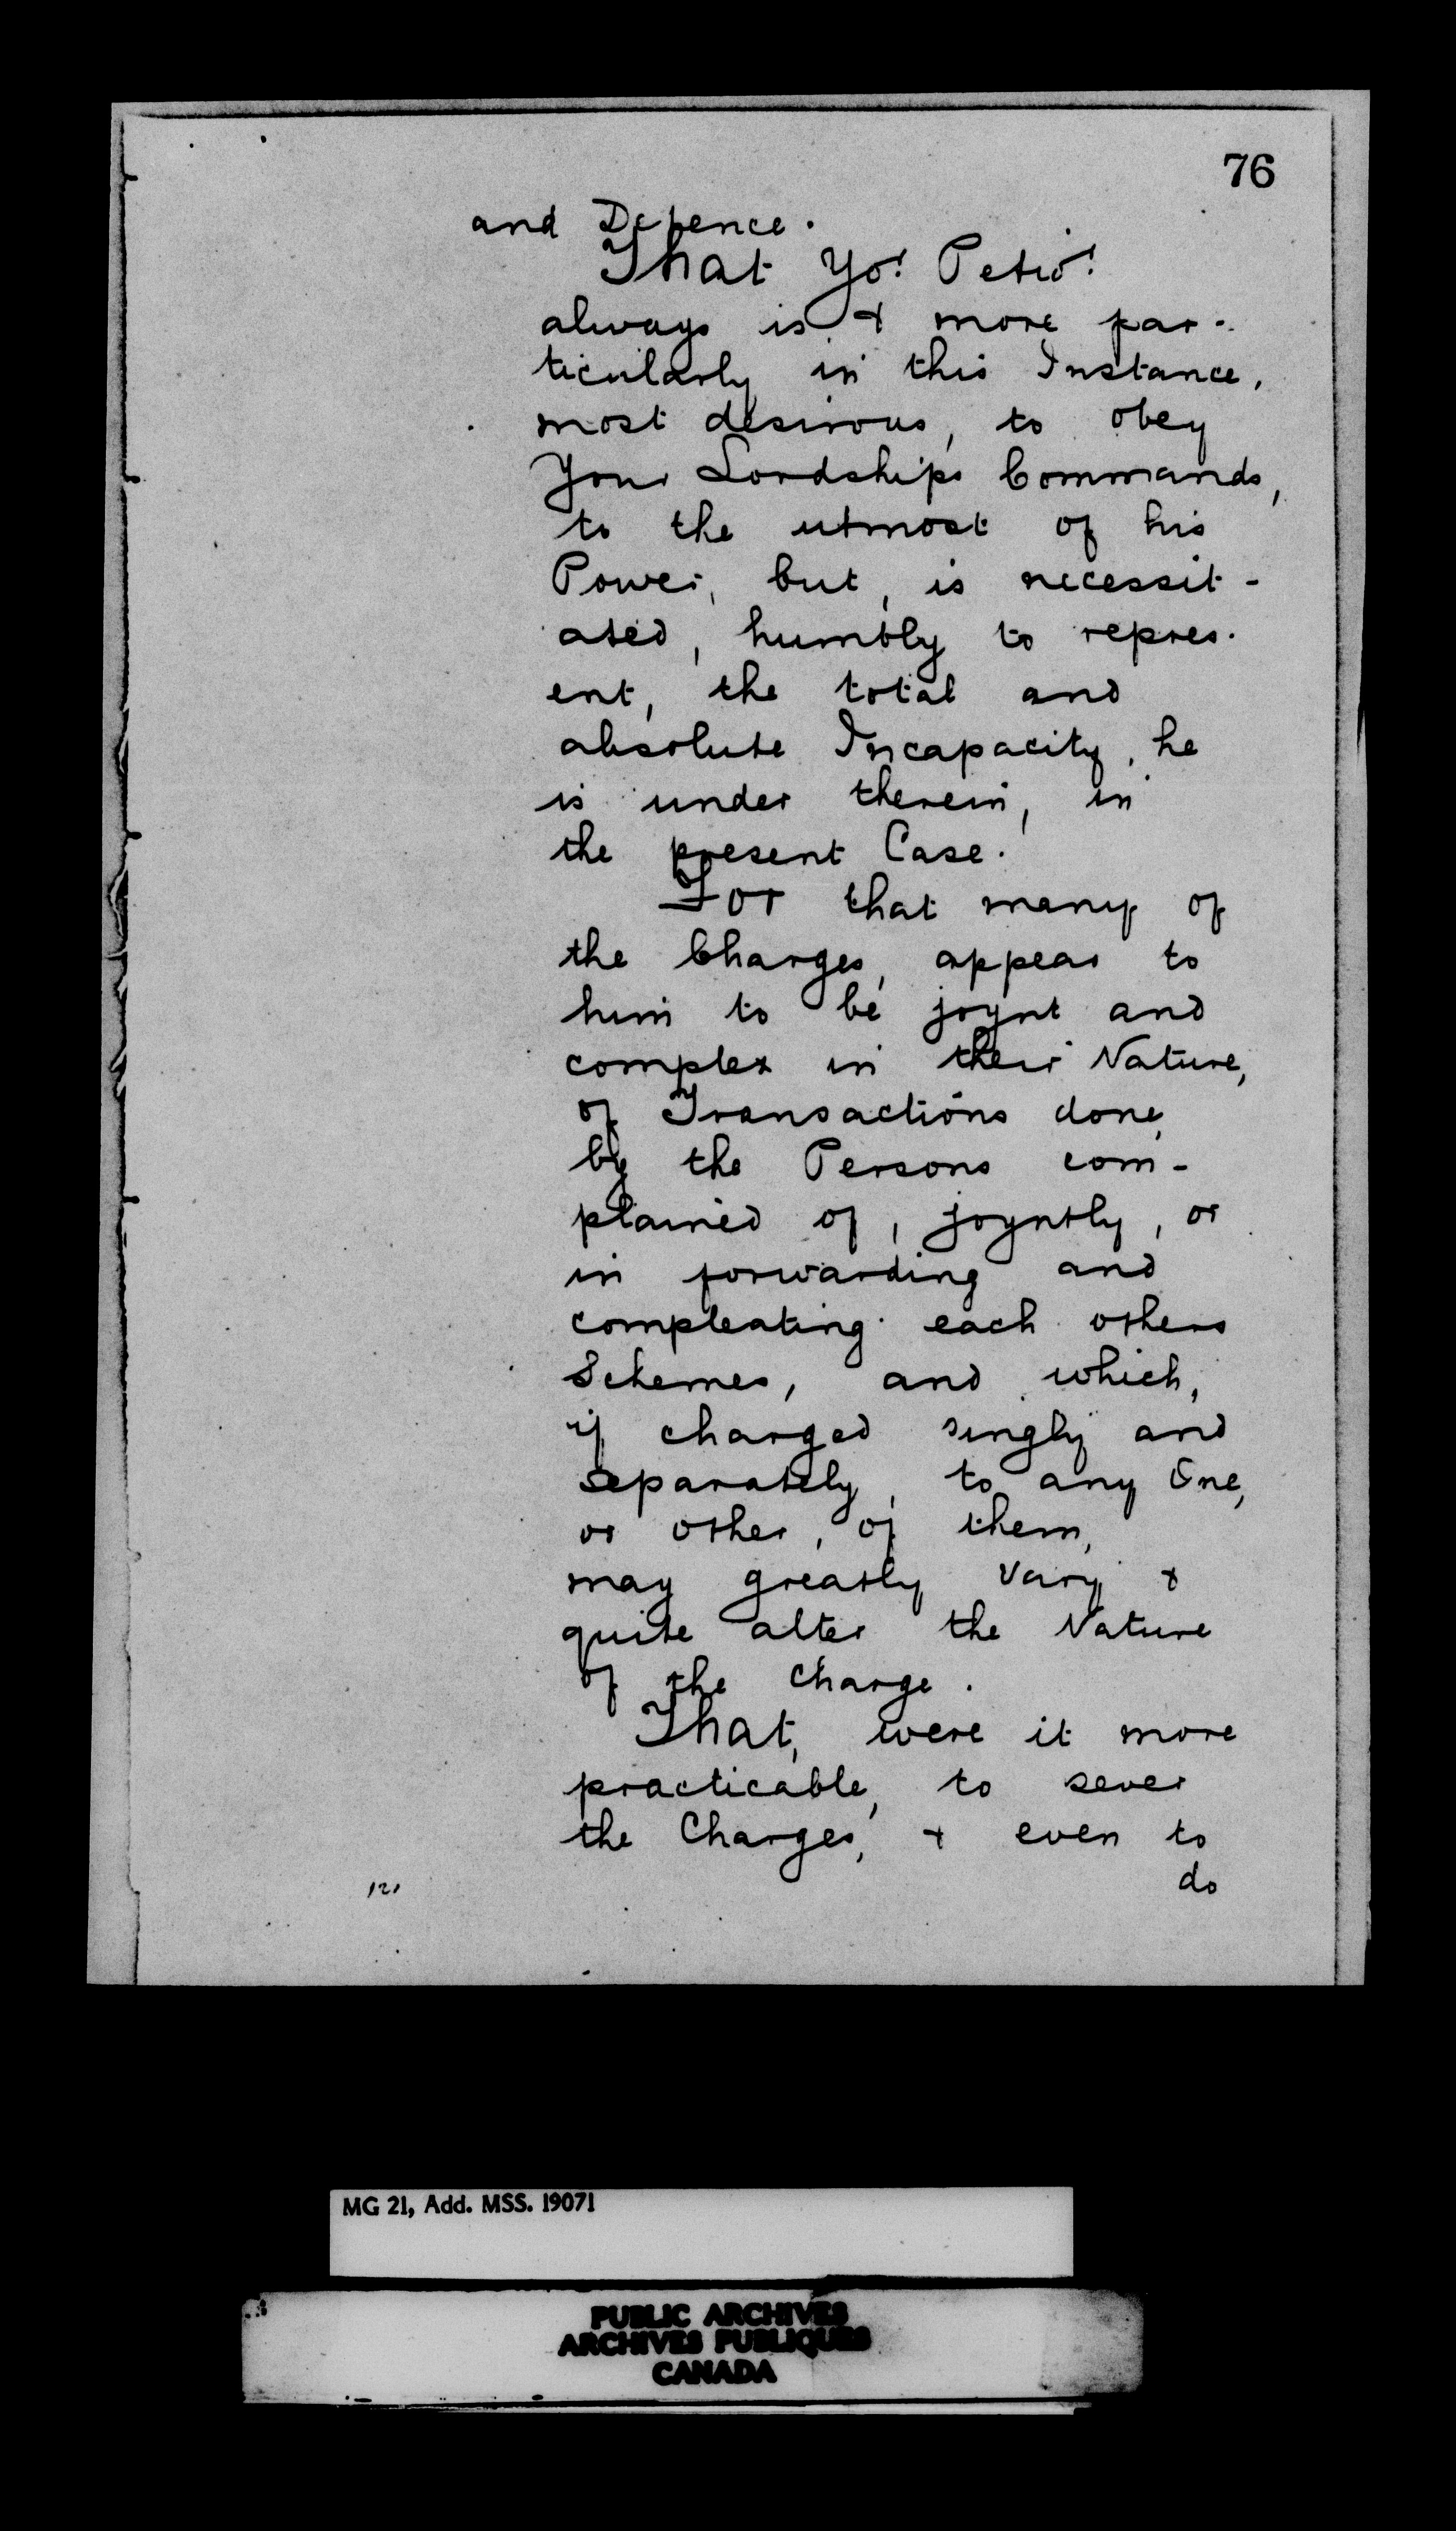 76
and Defence.
That Yo.r Petio.r
always is & more par-
ticularly in this Instance,
most desirous, to obey
Your Lordships Commands,
to the utmost of his
Power, but, is necessit-
ated, humbly to repres-
ent, the total and
absolute Incapacity, he
is under therein, in
the present Case.
For that many of
the Charges, appear to
him to be joynt and
complex in their Nature,
of Transactions done,
by the Persons com-
plained of, joyntly, or
in forwarding and
compleating each others
Schemes, and which,
if charged singly and
separately, to any One,
or other, of them,
may greatly vary &
quite alter the Nature
of the Charge.
That, were it more
practicable, to sever
the Charges, & even to
do
121
MG 21, Add. MSS. 19071
PUBLIC ARCHIVES
ARCHIVES PUBLIQUES
CANADA